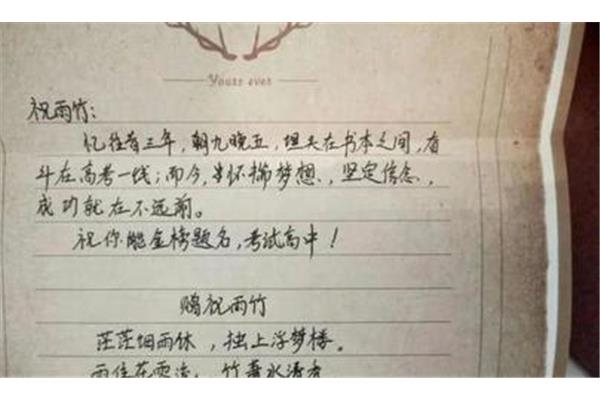 Yours ever
祝雨竹：
忆往昔三年，朝九晚五，埋头在书本之间，奋
斗在高考一线；而今，当怀揣梦想，坚定信念，
成功就在不远前。
祝你能金榜题名，考试高中！
鹏祝雨竹
茫茫烟雨休，独上浮梦楼。
雨住花零